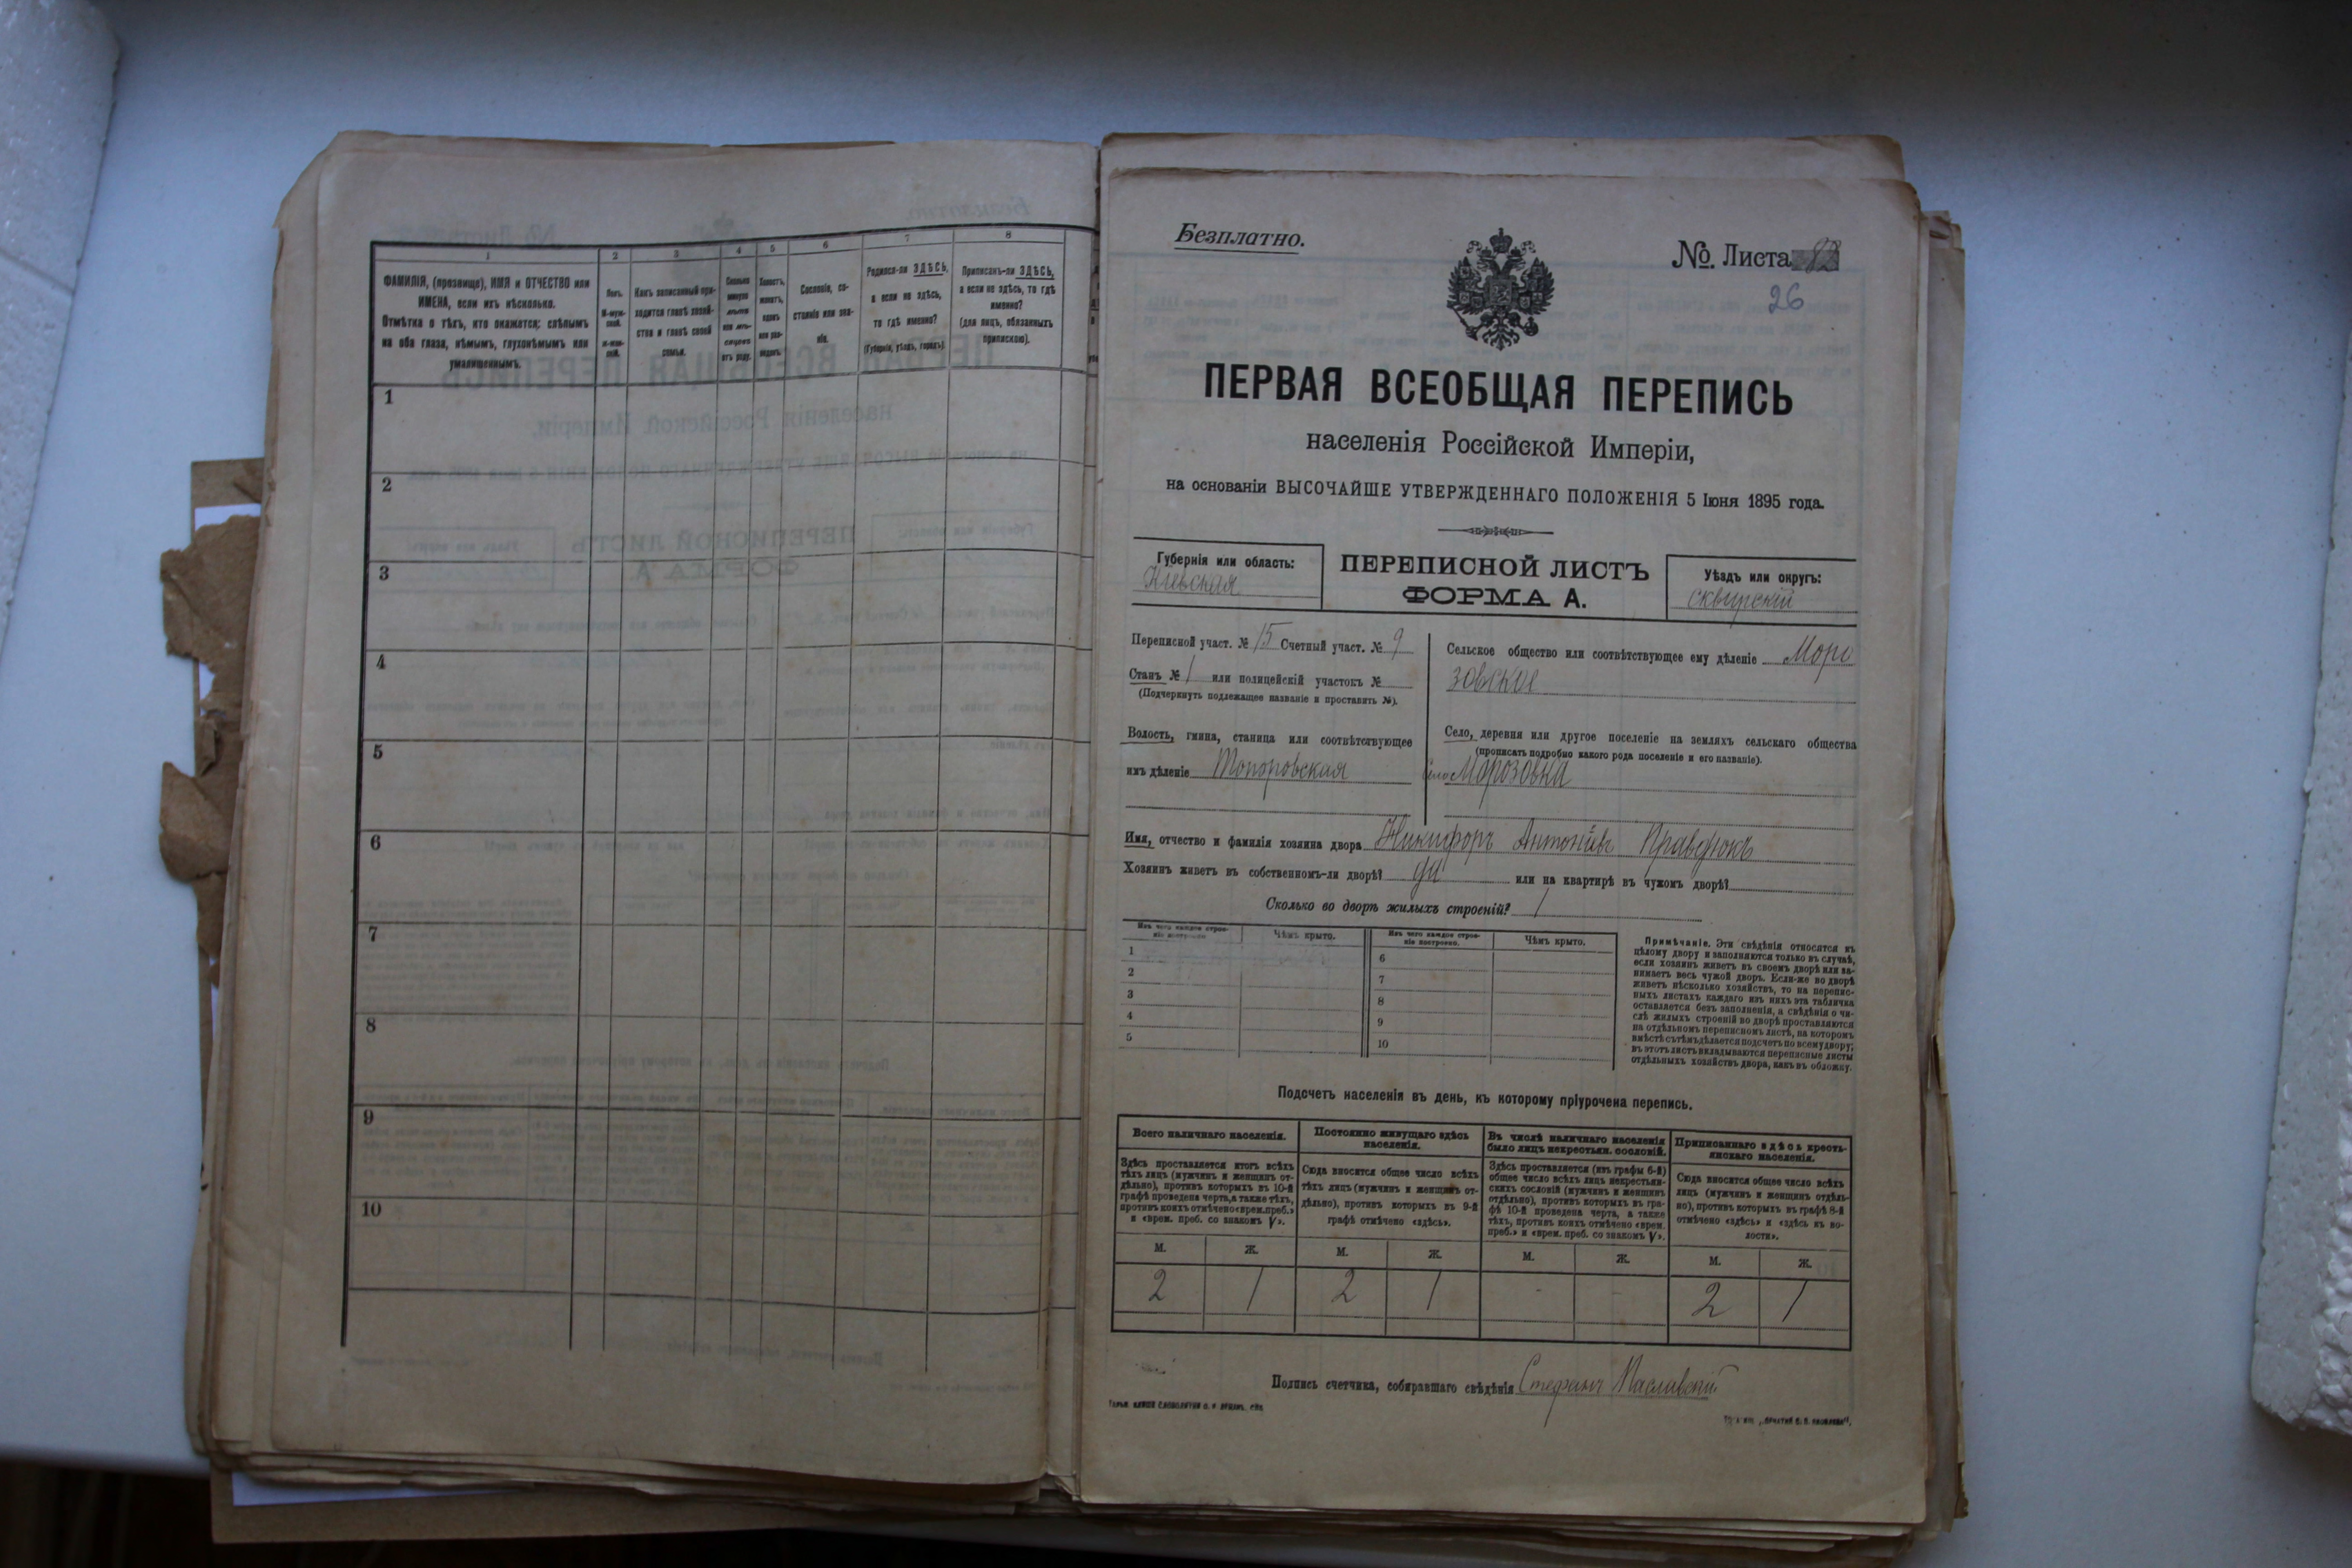 1
2
3
4
5
6
7
8
ФАМИЛІЯ, (прозвище), ИМЯ и ОТЧЕСТВО или
ИМЕНА, если ихъ нѣсколько.
Отмѣтка о тѣхъ, кто окажется: слѣпымъ
на оба глаза, нѣмымъ, глухонѣмымъ или
умалишеннымъ.
Полъ.
М-муж-
ской.
Какъ записанный при-
ходится главѣ хозяй-
ства и главѣ своей
семьи.
Сколько
отъ роду.
Холостъ,
женатъ,
вдовъ
Сословіе, со-
стояніе или зва-
ніе.
Родился-ли ЗДѢСЬ,
а если не здѣсь,
то гдѣ именно?
(Губернія, уѣздъ, городъ).
Приписанъ-ли ЗДѢСЬ,
а если не здѣсь, то гдѣ
именно?
(для лицъ, обязанныхъ
припискою).
1
2
3
4
5
6
7
8
9
10
Безплатно.
№. Листа
26
ПЕРВАЯ ВСЕОБЩАЯ ПЕРЕПИСЬ
населенія Россійской Имперіи,
на основаніи ВЫСОЧАЙШЕ УТВЕРЖДЕННАГО ПОЛОЖЕНІЯ 5 Іюня 1895 года.
Губернія или область:
Кіевская
ПЕРЕПИСНОЙ ЛИСТЪ
ФОРМА А.
Уѣздъ или округъ:
Сквирскій
Переписной участ. № 15 Счетный участ. № 9
Станъ № 1 или полицейскій участокъ №
(Подчеркнуть подлежащее названіе и проставить №).
Волость, гмина, станица или соотвѣтствующее
имъ дѣленіе Топоровская
Сельское общество или соотвѣтствующее ему дѣленіе Моро
зовское
Село, деревня или другое поселеніе на земляхъ сельскаго общества
(прописать подробно какого рода поселеніе и его названіе).
село Морозовка
Имя, отчество и фамилія хозяина двора Никифоръ Антоніевъ Праведюкъ
Хозяинъ живетъ въ собственномъ-ли дворѣ? да или на квартирѣ въ чужомъ дворѣ?
Сколько во дворѣ жилыхъ строеній? 1
Изъ чего каждое строе-
ніе построено.
Чѣмъ крыто.
Изъ чего каждое строе-
ніе построено.
Чѣмъ крыто.
1
2
3
4
5
6
7
8
9
10
Примѣчаніе. Эти свѣдѣнія относятся къ
цѣлому двору и заполняются только въ случаѣ,
если хозяинъ живетъ въ своемъ дворѣ или за-
нимаетъ весь чужой дворъ. Если-же во дворѣ
живетъ нѣсколько хозяйствъ, то на перепис-
ныхъ листахъ каждаго изъ нихъ эта табличка
оставляется безъ заполненія, а свѣдѣнія о чи-
слѣ жилыхъ строеній во дворѣ проставляются
на отдѣльномъ переписномъ листѣ, на которомъ
вмѣстѣ съ тѣмъ дѣлается подсчетъ по всему двору;
въ этотъ листъ вкладываются переписные листы
отдѣльныхъ хозяйствъ двора, какъ въ обложку.
Подсчетъ населенія въ день, къ которому пріурочена перепись.
Всего наличнаго населенія.
Здѣсь проставляется итогъ всѣхъ
тѣхъ лицъ (мужчинъ и женщинъ от-
дѣльно), противъ которыхъ въ 10-й
графѣ проведена черта, а также тѣхъ,
противъ коихъ отмѣчено «врем. преб.»
и «врем. преб. со знакомъ V».
Постоянно живущаго здѣсь
населенія.
Сюда вносится общее число всѣхъ
тѣхъ лицъ (мужчинъ и женщинъ от-
дѣльно), противъ которыхъ въ 9-й
графѣ отмѣчено «здѣсь».
Въ числѣ наличнаго населенія
было лицъ некрестьян. сословій.
Здѣсь проставляется (изъ графы 6-й)
общее число всѣхъ лицъ некрестьян-
скихъ сословій (мужчинъ и женщинъ
отдѣльно), противъ которыхъ въ гра-
фѣ 10-й проведена черта, а также
тѣхъ, противъ коихъ отмѣчено «врем.
преб.» и «врем. преб. со знакомъ V».
Приписаннаго здѣсь кресть-
янскаго населенія.
Сюда вносится общее число всѣхъ
лицъ (мужчинъ и женщинъ отдѣль-
но), противъ которыхъ въ графѣ 8-й
отмѣчено «здѣсь» и «здѣсь къ во-
лости».
М. Ж. М. Ж. М. Ж. М. Ж.
2 1 2 1 - 2 1
Подпись счетчика, собиравшаго свѣдѣнія Стефанъ Маславскій